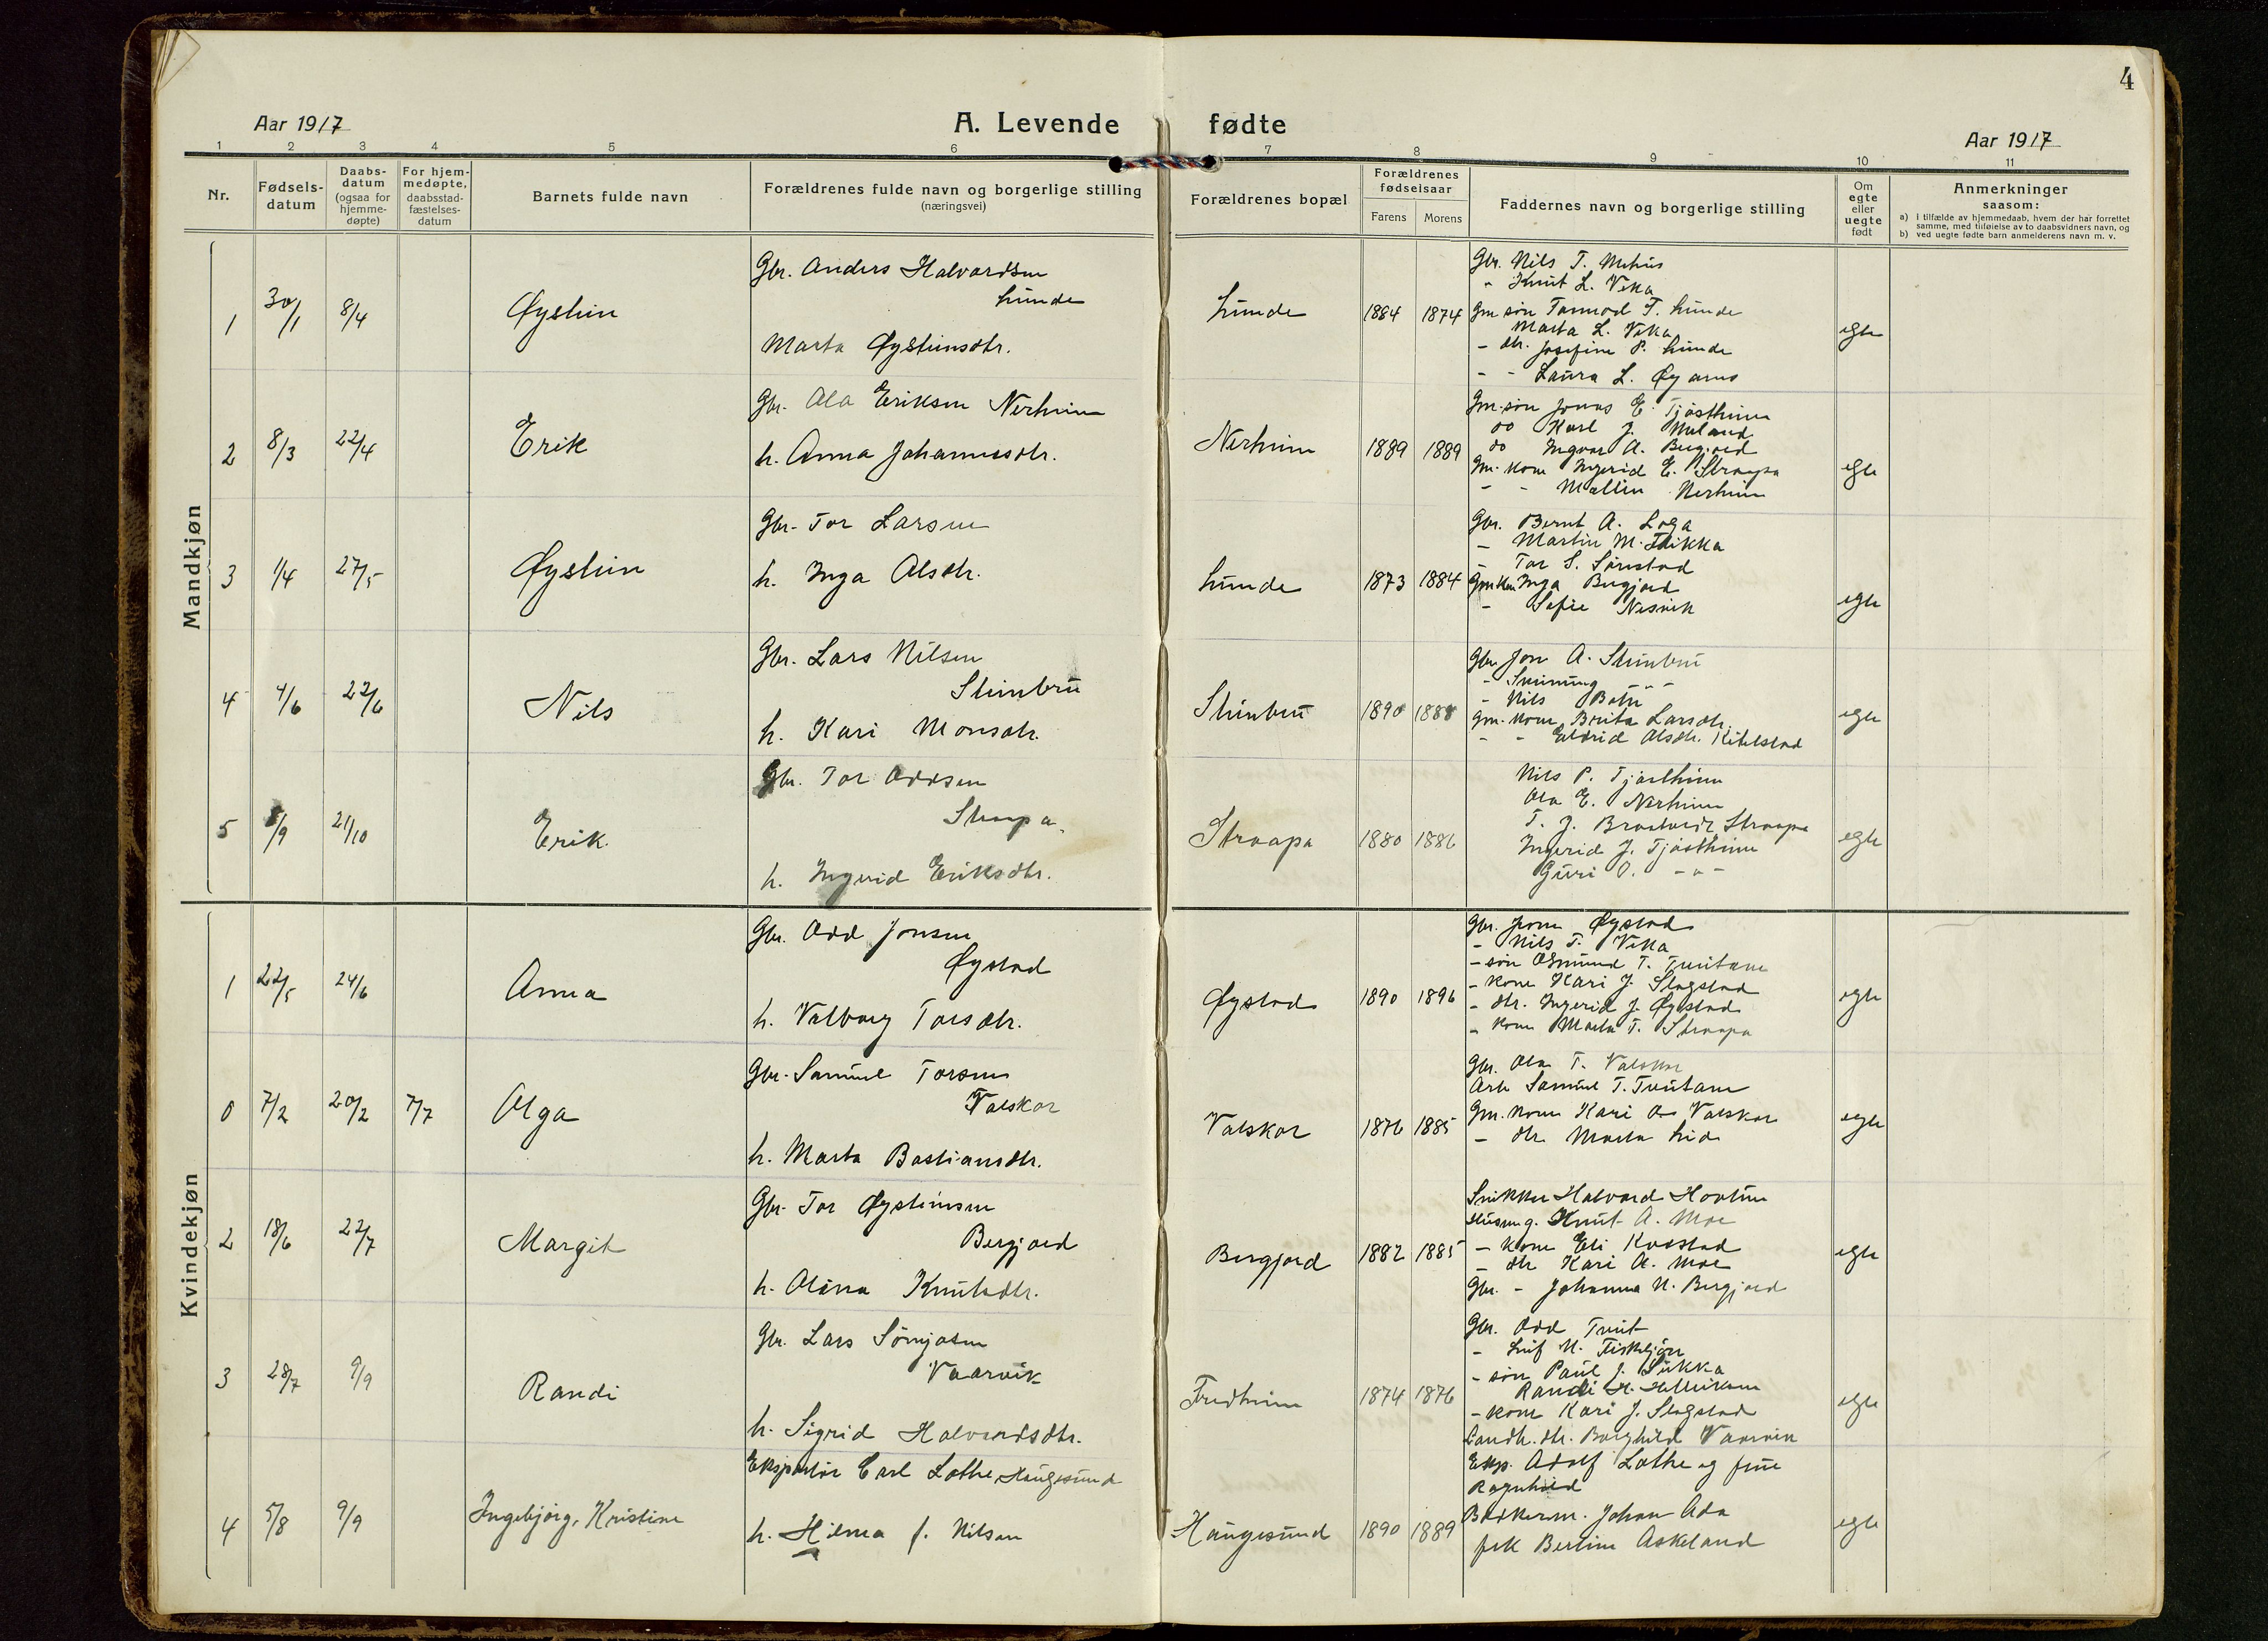 4
Aar 1917
A. Levende fødte
Aar 1917
1 2 3 4 5 6 7 8 9 10 11
Nr.
Fødsels-
datum
Daabs-
datum
(ogsaa for
hjemme-
døpte)
For hjem-
medøpte,
daabsstad-
fæstelses-
datum
Barnets fulde navn
Forældrenes fulde navn og borgerlige stilling
(næringsvei)
Forældrenes bopæl
Forældrenes
fødselsaar
Farens Morens
Faddernes navn og borgerlige stilling
Om
egte
eller
uegte
født
Anmerkninger
saasom:
a) i tilfælde av hjemmedaab, hvem der har forrettet
samme, med tilføielse av to daabsvidners navn, og
b) ved uegte fødte barn anmelderens navn m. v.
Mandkjøn
1 30/1 8/4 Øystein
Gbr. Anders Halvardsen
Lunde
Marta Øysteinsdtr.
Lunde 1884 1874
Gbr. Nils T. Mehus
" Knut L. Vika
Gm søn Tormod T. Lunde
Marta L. Vika
- dtr. Josefine P. Lunde
- - Laura L. Øyarus
egte
2 8/3 22/4 Erik
Gbr. Ola Eriksen Nerheim
h. Anna Johannesdtr.
Nerheim 1889 1889
Gm. søn Jonas E. Tjøstheim
do Karl J. Meland
do Ingvar A. Bergjord
Gm. kone Ingerid E. Straapa
- - Mallin Nerheim
egte
3 1/4 27/5 Øystein
Gbr. Tor Larsen
h. Inga Olsdtr.
Lunde 1873 1884
Gbr. Bernt A. Loga
- Martin M. Flikka
- Tor S. Sørestad
Gm kone Inga Bergjord
- Sefie Nesvik
egte
4 4/6 22/6 Nils
Gbr. Lars Nilsen
Steinbru
h. Kari Monsdtr.
Steinbru 1890 1888
Gbr. Jon A. Steinbru
- Sveinung - " -
- Nils Botn
Gm. kone Brita Larsdtr.
- - Eldrid Olsdtr. Kitelstad
egte
5 5/9 21/10 Erik.
Gbr. Tor Oddsen
Straapa.
h. Ingerid Eriksdtr.
Straapa 1880 1886
Nils P. Tjøstheim
Ola E. Nerheim
T. J. Braatveit Straapa
Ingerid J. Tjøstheim
Guri O. - " -
egte
Kvindekjøn
1 22/5 24/6 Anna
Gbr. Odd Jonsen
Øystad
h. Valborg Torsdtr.
Øystad 1890 1896
Gbr. Jone Øystad
- Nils T. Vika
- søn Osmund T. Tveitane
- kone Kari J. Slogstad
- dtr. Ingerid J. Øystad
- kone Marta T. Straapa
egte
0 7/2 20/2 7/7 Olga
Gbr. Samuel Torsen
Valskar
h. Marta Bastiansdtr.
Valskar 1876 1885
Gbr. Ola T. Valskar
Arb Samuel T. Tveitane
Gm. kone Kari O. Valskar
- dtr. Marta Lid
egte
2 18/6 22/7 Margit
Gbr. Tor Øysteinsen
Bergjord
h. Olina Knutsdtr.
Bergjord 1882 1885
Snikker Halvard Hovland
Husm g. Knut A. Moe
- kone Eli Kvestad
- dtr Kari A. Moe
Gbr. - Johanna N. Bergjord
egte
3 28/7 9/9 Randi
Gbr. Lars Sønjosen
Vaarvik
h. Sigrid Halvardsdtr.
Fredheim 1874 1876
Gbr. Odd Tveit
- Leif N. Fisketjøn
- søn Paul J. Sukka
Randi H. Helleiksen
- kone Kari J. Slogstad
Landh. dtr. Borghild Vaarvik
egte
4 5/8 9/9 Ingebjørg, Kristine
Eksportør Carl Lothe Haugesund
h. Hilma f. Nilsen
Haugesund 1890 1889
Eksp. Adolf Lothe og frue
Ragnhild
Bødkerm. Johan Ada
frk Bertine Askeland
egte